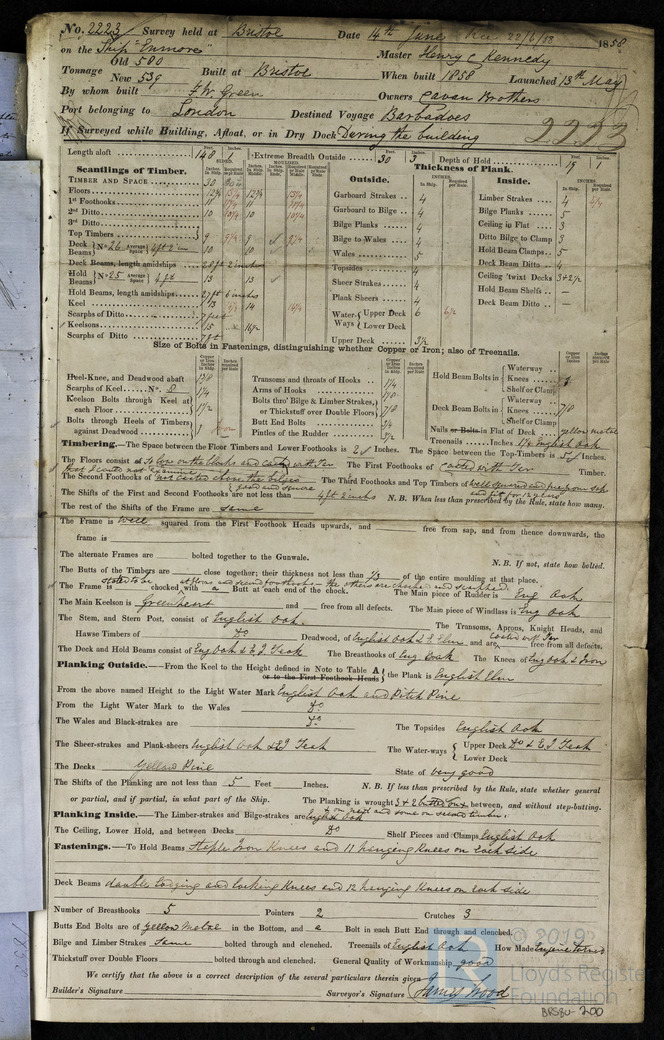 No. 2223 Survey held at Bristol Date 14th June 22/6/58 1858
on the Ship "Enmore" Master Henry C Kennedy
Tonnage Old 580 New 539 Built at Bristol When built 1858 Launched 13th May
By whom built F.W. Green Owners Cavan Brothers
Port belonging to London Destined Voyage Barbadoes
If Surveyed while Building, Afloat, or in Dry Dock During the building 2223
Length aloft 148 1 Extreme Breadth Outside 30 3 Depth of Hold 19 1
Scantlings of Timber. Thickness of Plank.
Outside. Inside.
Timber and Space 30
Floors
1st Foothooks
2nd Ditto 10
3rd Ditto
Top Timbers 9
Deck Beams No 26 Average Space 4ft 2in 10
Deck Beams, length amidships 28ft 2 inches
Hold Beams No 25 Average Space 4 ft 13
Hold Beams, length amidships 27ft 6 inches
Keel 13 14
Scarphs of Ditto 7 feet
Keelsons 15 16½
Scarphs of Ditto 7 ft
Garboard Strakes 4
Garboard to Bilge 4
Bilge Planks 4
Bilge to Wales 4
Wales 5
Topsides 4
Sheer Strakes 4
Plank Sheers 4
Water-Ways Upper Deck 6 Lower Deck
Upper Deck 3½
Limber Strakes 4
Bilge Planks 5
Ceiling in Flat 3
Ditto Bilge to Clamp 3
Hold Beam Clamps 5
Deck Beam Ditto 4
Ceiling 'twixt Decks 3 & 2½
Hold Beam Shelfs —
Deck Beam Ditto —
Size of Bolts in Fastenings, distinguishing whether Copper or Iron; also of Treenails.
Heel-Knee, and Deadwood abaft
Scarphs of Keel No. 8
Keelson Bolts through Keel at each Floor
Bolts through Heels of Timbers against Deadwood
Transoms and throats of Hooks
Arms of Hooks
Bolts thro' Bilge & Limber Strakes, or Thickstuff over Double Floors
Butt End Bolts
Pintles of the Rudder
Hold Beam Bolts in Waterway Knees Shelf or Clamp
Deck Beam Bolts in Waterway Knees Shelf or Clamp
Nails or Bolts in Flat of Deck yellow metal
Treenails Inches 1¼ English Oak
Timbering.—The Space between the Floor Timbers and Lower Foothooks is Inches. The Space between the Top-Timbers is Inches.
The Floors consist of The First Foothooks of Timber.
The Second Foothooks of The Third Foothooks and Top Timbers of
The Shifts of the First and Second Foothooks are not less than 4ft 2 inchs N. B. When less than prescribed by the Rule, state how many.
The rest of the Shifts of the Frame are same
The Frame is well squared from the First Foothook Heads upwards, and free from sap, and from thence downwards, the
frame is
The alternate Frames are bolted together to the Gunwale. N. B. If not, state how bolted.
The Butts of the Timbers are close together; their thickness not less than 1/3 of the entire moulding at that place.
The Frame is stated to be chocked with a Butt at each end of the chock. The Main piece of Rudder is Eng Oak
The Main Keelson is Greenheart and free from all defects. The Main piece of Windlass is Eng Oak
The Stem, and Stern Post, consist of English Oak. The Transoms, Aprons, Knight Heads, and
Hawse Timbers of Do Deadwood, of English Oak & E Elm and are free from all defects.
The Deck and Hold Beams consist of Eng Oak & E I Teak The Breasthooks of Eng Oak The Knees of Eng Oak & Iron
Planking Outside.—From the Keel to the Height defined in Note to Table A or to the First Foothook Heads the Plank is English Elm
From the above named Height to the Light Water Mark English Oak and Pitch Pine
From the Light Water Mark to the Wales Do
The Wales and Black-strakes are Do The Topsides English Oak
The Sheer-strakes and Plank-sheers English Oak & E I Teak The Water-ways Upper Deck Do & E I Teak Lower Deck
The Decks Yellow Pine State of very good
The Shifts of the Planking are not less than 5 Feet Inches. N. B. If less than prescribed by the Rule, state whether general
or partial, and if partial, in what part of the Ship. The Planking is wrought 3 & 2 between, and without step-butting.
Planking Inside.—The Limber-strakes and Bilge-strakes are English Oak
The Ceiling, Lower Hold, and between Decks Do Shelf Pieces and Clamps English Oak
Fastenings.—To Hold Beams Staple Iron Knees and 11 hanging Knees on each side
Deck Beams double Lodging and locking Knees and 12 hanging Knees on each side
Number of Breasthooks 5 Pointers 2 Crutches 3
Butts End Bolts are of Yellow Metal in the Bottom, and a Bolt in each Butt End through and clenched.
Bilge and Limber Strakes Same bolted through and clenched. Treenails of English Oak How Made Engine turned
Thickstuff over Double Floors bolted through and clenched. General Quality of Workmanship good
We certify that the above is a correct description of the several particulars therein given
Builder's Signature Surveyor's Signature James Wood
© 2019
Lloyd's Register Foundation
BRS8U-200